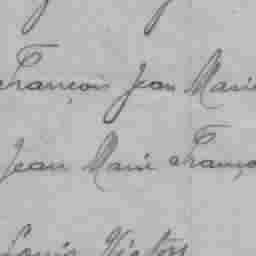 François Jean Marie
Jean Marie Franço
Louis Victor